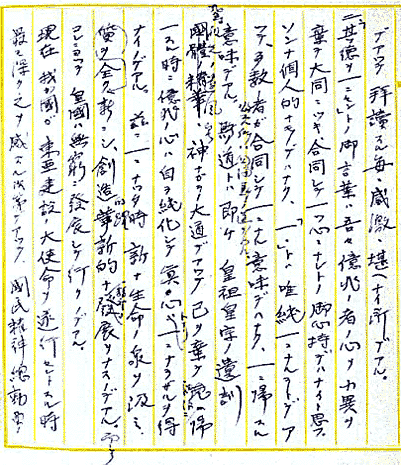 デアツテ拝讀スル毎ニ感激ニ堪ヘナイ所デアル。
「其徳ヲ一ニセン」トノ御言葉ハ吾々億兆ノ者ノ心ヲ異ヲ
棄テ大同ニツキ合同シテ一ツ心ニナレトノ御心持デハナイト思フ。
ソンナ個人的ナモノデハナク、「一」トハ唯純一ニナルコトデアツ
テ、多数ノ者ガ合同シテ一ニナル意味デハナク、一ニ帰スル
意味デアル。斯道トハ即チ皇祖皇宗ノ遺訓
國體ノ精華 神ナガラノ大道デアツテ己ヲ棄テ
一スル時ニ億兆ノ心ハ自ラ純化シテ冥々ノ心ガ一ニナラザルヲ得
ナイノデアル。茲ニ一ニナツタ時新ナ生命ノ泉ヲ汲ミ、
全ク新シイ創造 革新的ナ發展ヲナスノデアル。即チ
皇國ハ無窮ニ發展シテ行クノデアル。
現在我ガ國ガ東亜建設ノ大使命ヲ遂行セントスル時
最モ深ク之ヲ感ズル次第デアツテ、國民精神總動員